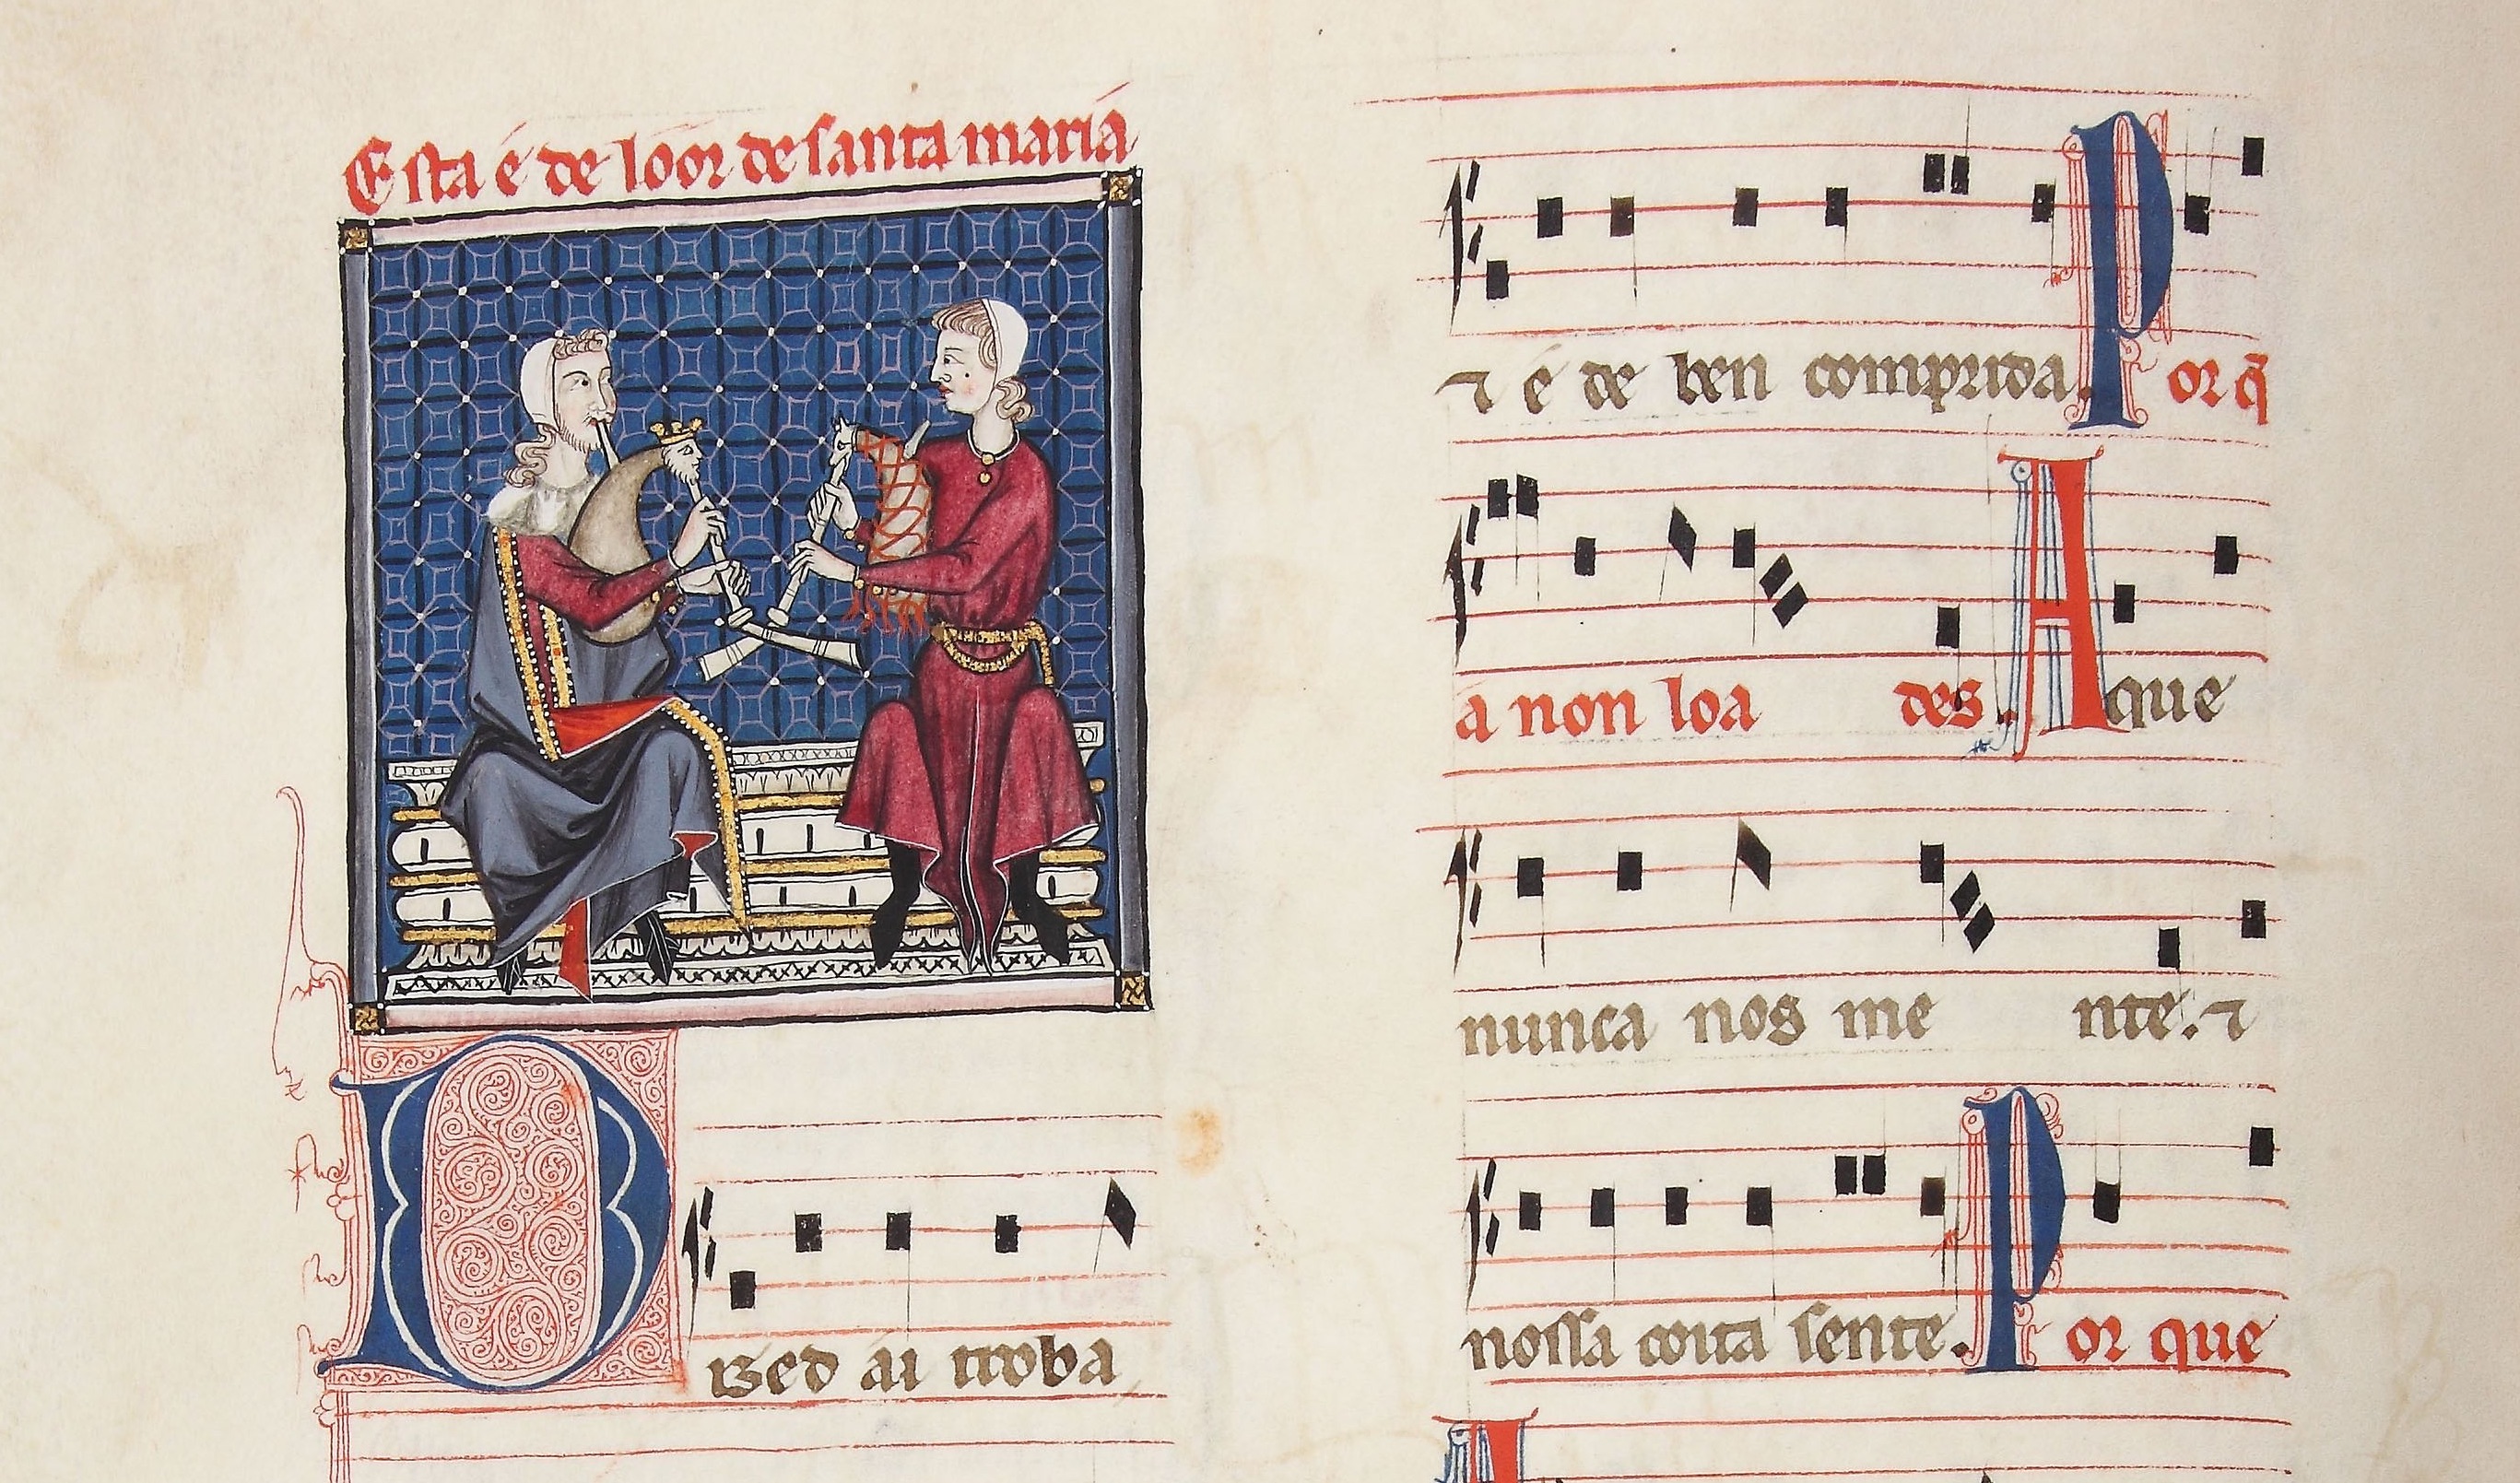 Esta é de lóor de santa maria
DIZed ái trroba
⁊ é de ben comprida. Por q̃
a non loa des. Aque
nunca nos me nte. ⁊
nossa coita sente. Por que
A